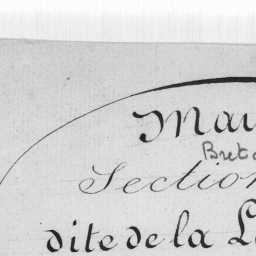 Mai
Bret
Section
dite de la L